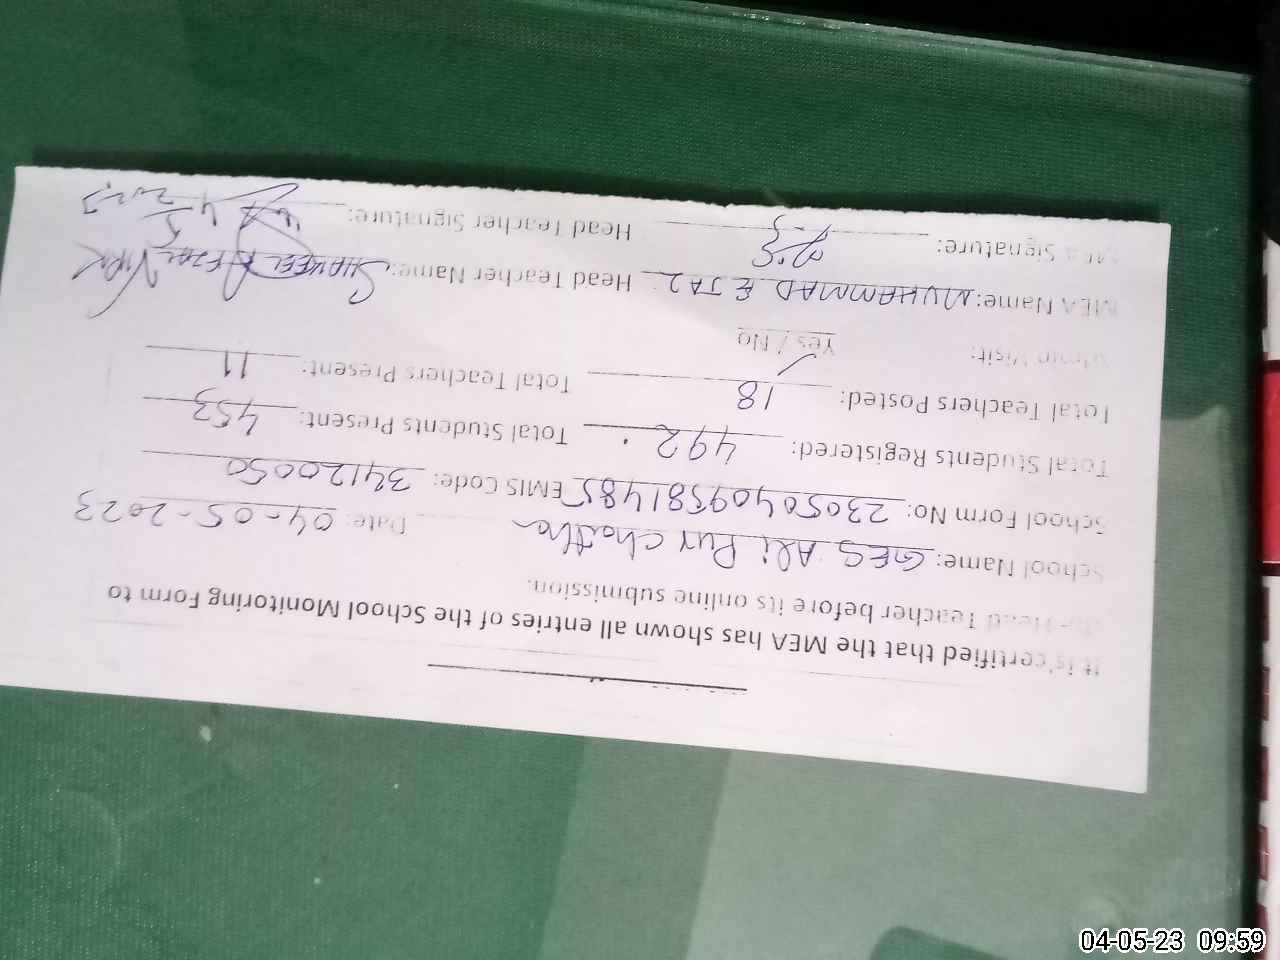 It is certified that the MEA has shown all entries of the School Monitoring Form to
the Head Teacher before its online submission.
School Name: GES Ali Pur Chattha Date: 04-05-2023
School Form No: 23050409581485 EMIS Code: 34120050
Total Students Registered: 492 Total Students Present: 453
Total Teachers Posted: 18 Total Teachers Present: 11
Visit: Yes / No
MEA Name: MUHAMMAD EJAZ Head Teacher Name: SHAKEEL AFZAL VIRK
MEA Signature: Head Teacher Signature: 4/5/2023
04-05-23 09:59